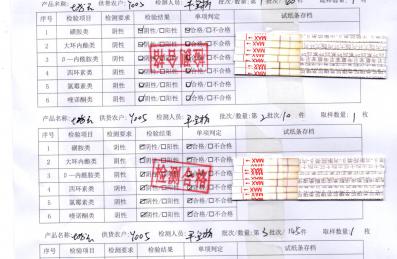 产品名称: 供货农户: Y005 检测人员: 批次/数量: 第 取样数量: 1 枚
序号 检验项目 检测要求 检验结果 单项判定 试纸条存档
1 磺胺类 阴性 ☑阴性/□阳性 ☑合格/□不合格
2 大环内酯类 阴性 ☑阴性/□阳性 ☑合格/□不合格
3 β-内酰胺类 阴性 阴性/□阳性 ☑合格/□不合格
4 四环素类 阴性 阴性/□阳性 ☑合格/□不合格
5 氯霉素类 阴性 阴性/□阳性 ☑合格/□不合格
6 喹诺酮类 阴性 ☑阴性/□阳性 ☑合格/□不合格
检测合格
MAX
产品名称: 供货农户: Y005 检测人员: 批次/数量: 第2批次/10 件 取样数量: 1 枚
序号 检验项目 检测要求 检验结果 单项判定 试纸条存档
1 磺胺类 阴性 ☑阴性/□阳性 ☑合格/□不合格
2 大环内酯类 阴性 ☑阴性/□阳性 ☑合格/□不合格
3 β-内酰胺类 阴性 ☑阴性/□阳性 ☑合格/□不合格
4 四环素类 阴性 阴性/□阳性 ☑合格/□不合格
5 氯霉素类 阴性 ☑阴性/□阳性 ☑合格/□不合格
6 喹诺酮类 阴性 ☑阴性/□阳性 ☑合格/□不合格
检测合格
MAX
产品名称: 供货农户: Y005 检测人员: 批次/数量: 第3批次/145件 取样数量: 1 枚
序号 检验项目 检测要求 检验结果 单项判定 试纸条存档